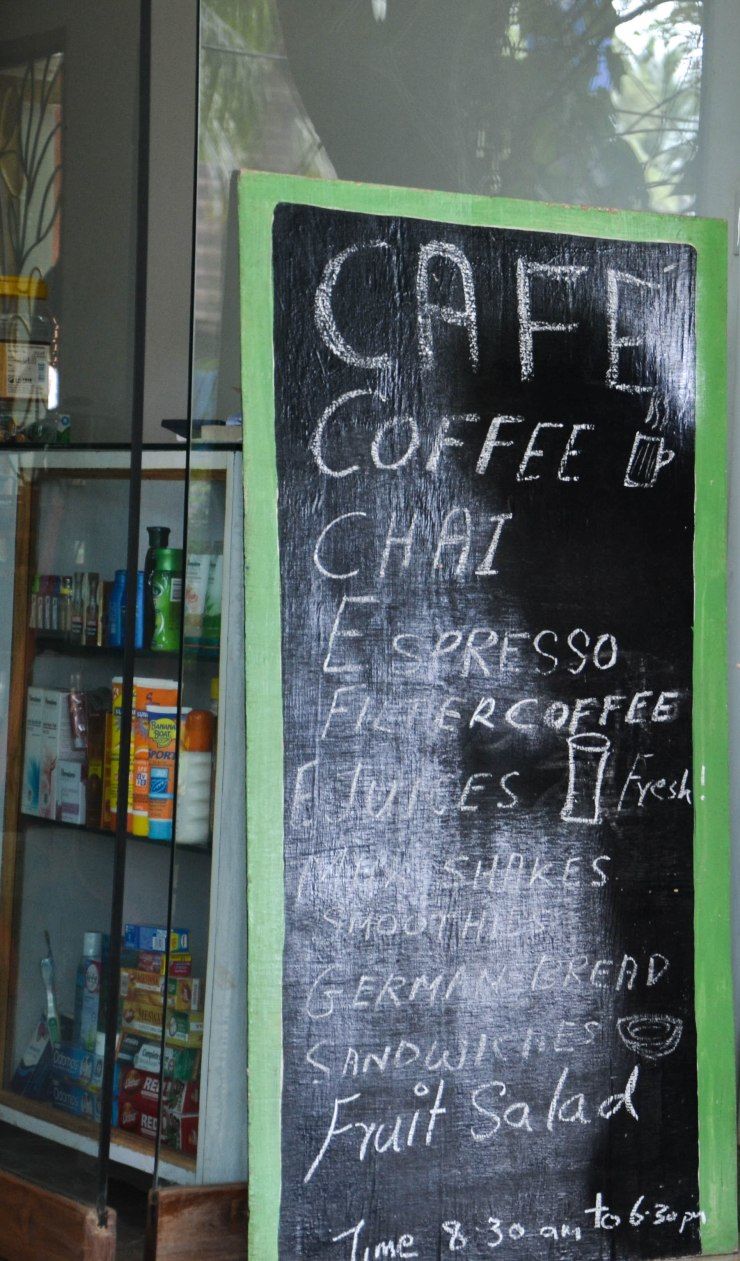 CAFE
COFFEE
CHAI
ESPRESSO
FILTERCOFFEE
JUICES Fresh!
MILK SHAKES
SMOOTHIES
GERMAN BREAD
SANDWICHES
Fruit Salad
Time 8.30 am to 6.30 pm
BANANA
BOAT
SPORT
Odomos
RED